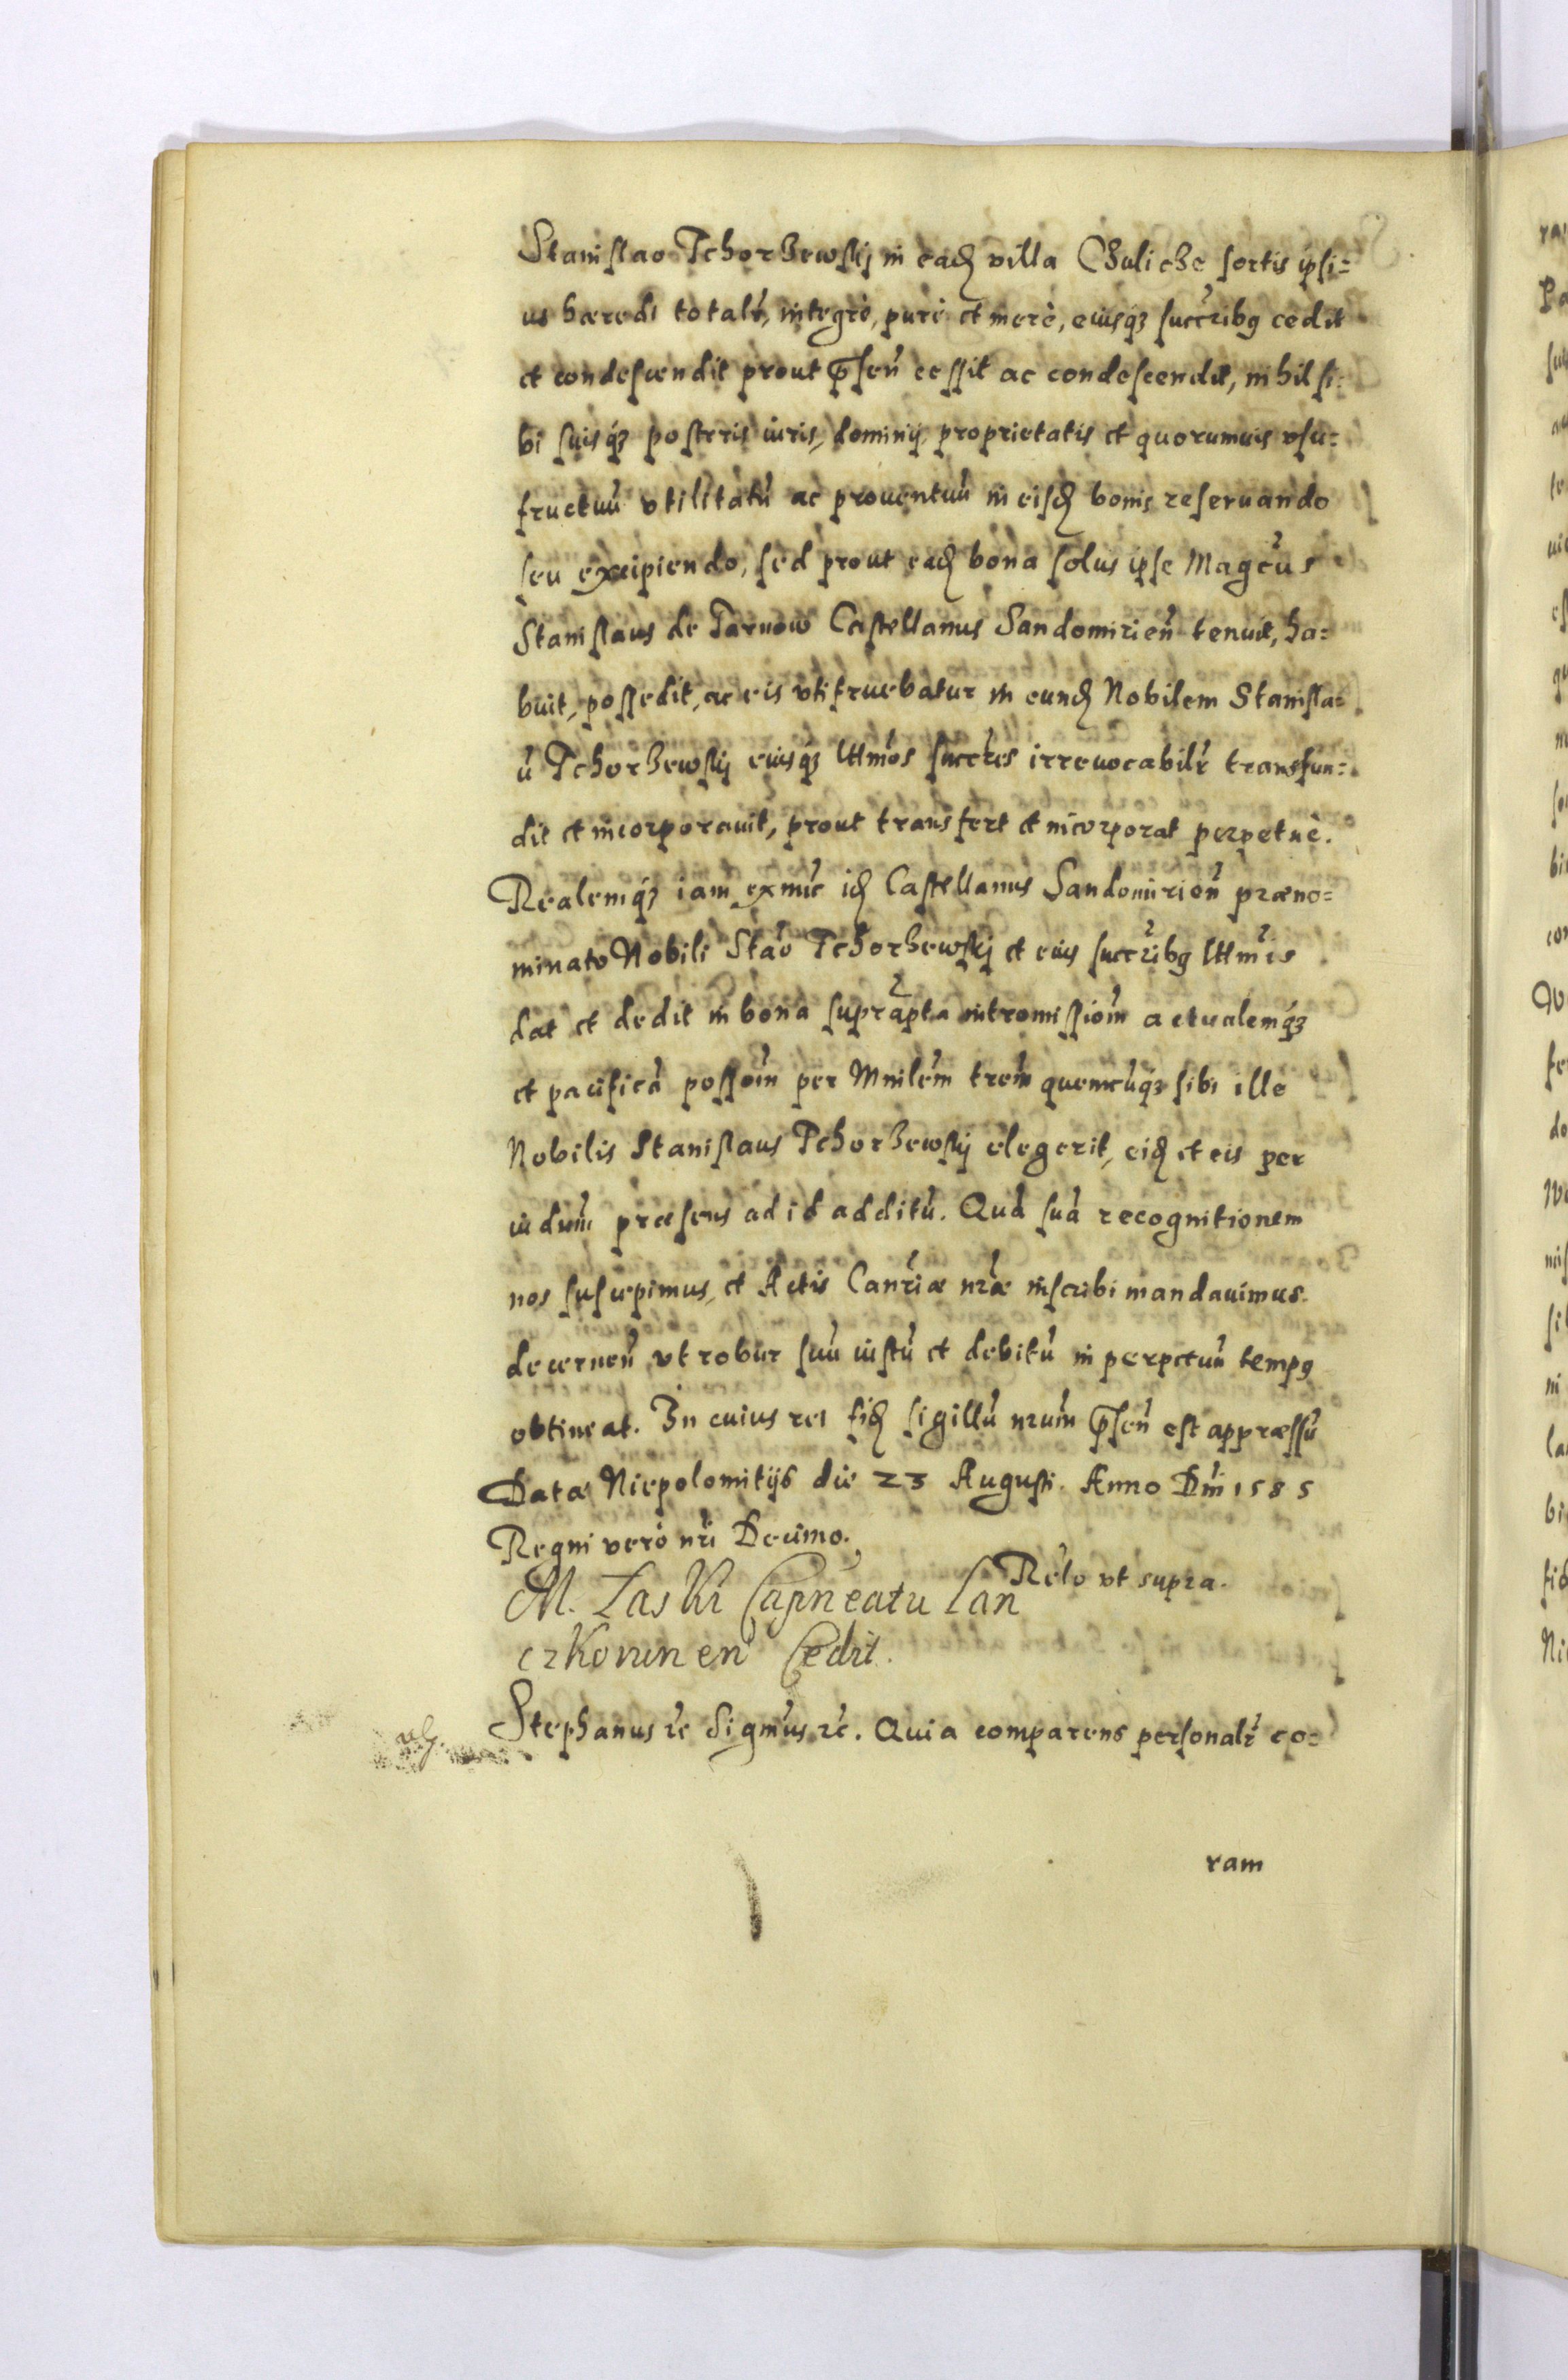 Stanislao Tchorzewskj in eadē villa Chuliche sortis ipsi=
us hæredi totalr̃, integrè, purè et merè, eiusq́3 succr̃ibꝫ cedit
et condescendit prout p̃señ cessit ac condescendit, nihil si=
bi suisq́3 posteris iuris, dominij, proprietatis et quorumuis vsu=
fructuū vtilitatū ac prouentuū in eisdē bonis reseruando
seu excipiendo, sed prout eadē bona solus ipse Magcūs
Stanislaus de Tarnow Castellanus Sandomirieñ tenuit, ha=
buit, possedit, ac eis vtifruebatur in eundē Nobilem Stanisla=
ū Tchorzewskij eiusq́3 lttmos succres irreuocabilr̃ transfun=
dit et incorporauit, prout transfert et incorporat perpetuè.
Realemq́3 iam exnūc idē Castellanus Sandomirieñ præno=
minato Nobili Stāo Tchorzewskj et eius succr̃ibꝫ lttmis
dat et dedit in bona suprapta intromissiom̄ actualemq́3
et pacificā possom̄ per Mnilem̄ trem̄ quemcūq́3 sibi ille
Nobilis Stanislaus Tchorzewskij elegerit, eidē et eis per
iudum̄ præsens ad id additū. Quā suā recognitionem
nos suscepimus, et Actis Canr̃iæ nr̃æ inscribi mandauimus.
decerneñ vt robur suū iustū et debitū in perpetuū tempꝫ
obtineat. In cuius rei fidē sigillū nrum̄ p̃señ est appræssū
Datæ Niepolomitijs die 23 Augusti. Anno Dni 1585
Regni verò nri Decimo.
Relo vt supra.
M. Laski Capneatu Lan
czkorunen Cedit.
Stephanus rc̃ Sigmus rc̃. Quia comparens personalr̃ co=
ram